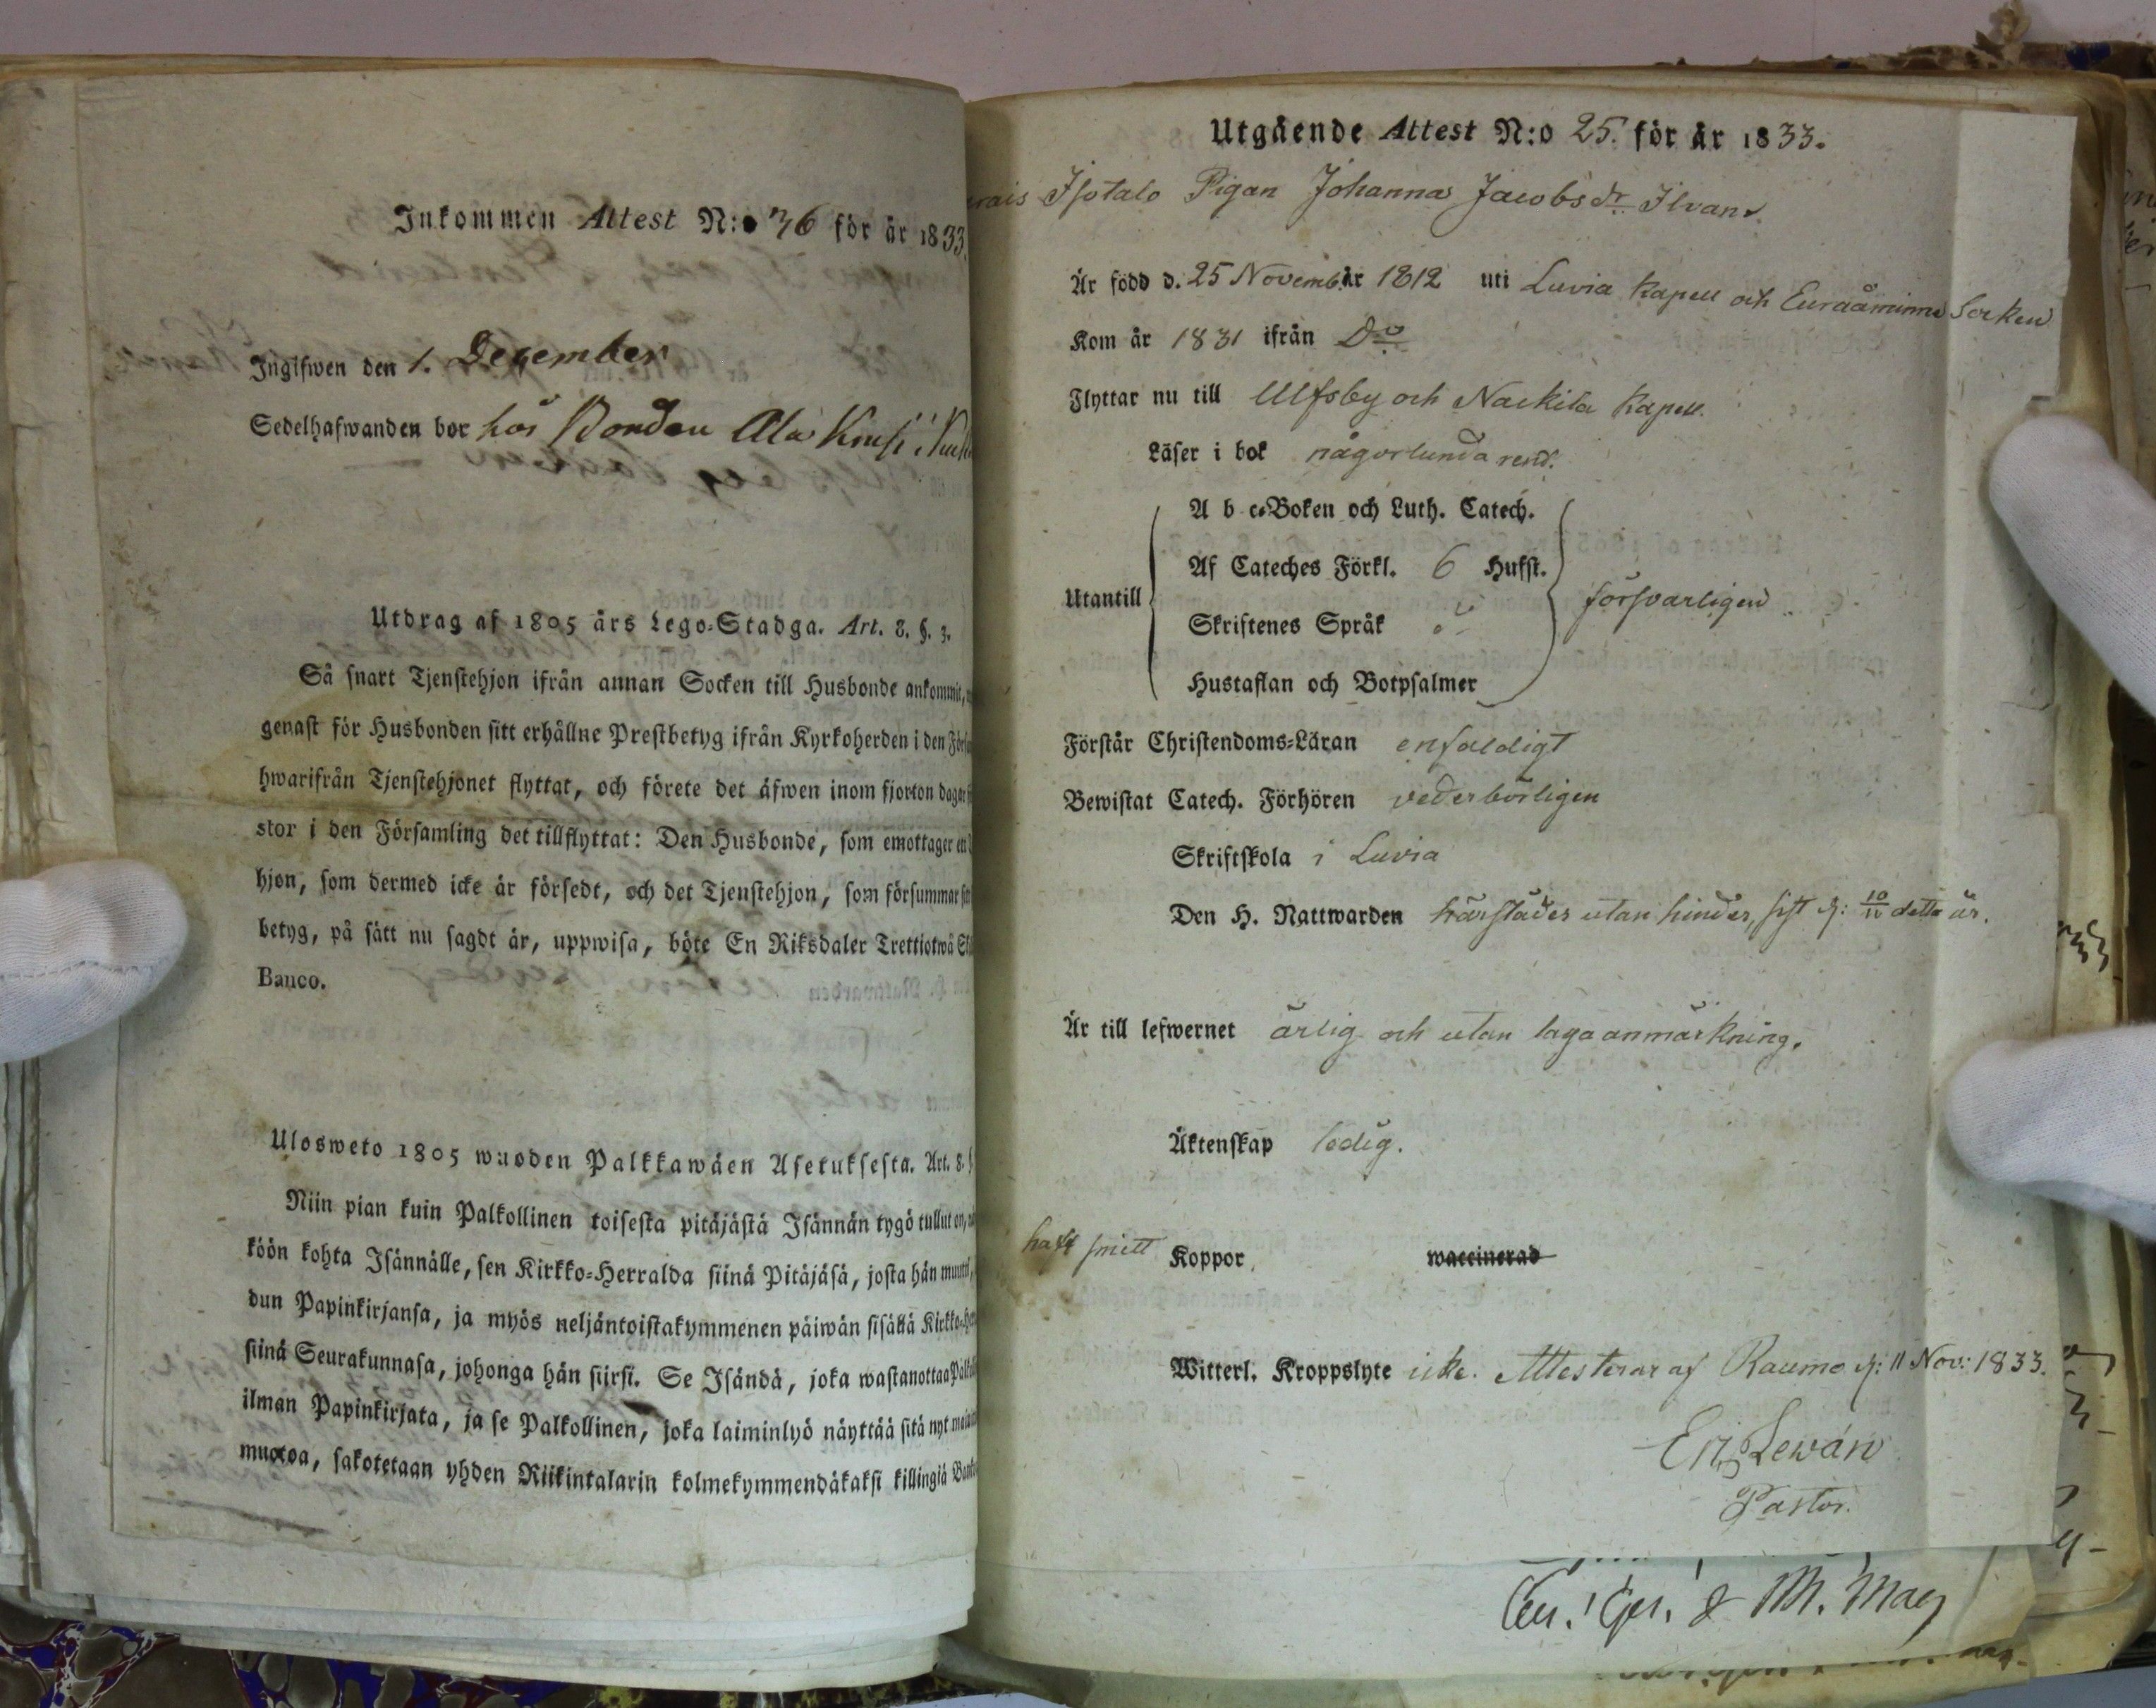 Inkommen Attest N:o 36 för år 1833.
Ingifwen den 1. December
Sedelhafwanden bor hos Bonden Ala
Utdrag af 1805 års Lego-Stadga. Art. 8. §. 3.
Så snart Tjenstehjon ifrån annan Socken till Husbonde ankommit,
genast för Husbonden sitt erhållne Prestbetyg ifrån Kyrkoherden i den
hwarifrån Tjenstehjonet flyttat, och förete det äfwen inom fjorton dagar
stor i den Församling det tillflyttat: Den Husbonde, som emottager
hjon, som dermed icke är försedt, och det Tjenstehjon, som försummar
betyg, på sätt nu sagdt är, uppwisa, böte En Riksdaler Trettiotwå
Banco.
Ulosweto 1805 wuoden Palkkawäen Asetuksesta. Art. 8. §
Niin pian kuin Palkollinen toisesta pitäjästä Isännän tygö tullut on,
köön kohta Isännälle, sen Kirkko-Herralda siinä Pitäjäsä, josta hän
dun Papinkirjansa, ja myös neljäntoistakymmenen päiwän sisällä
siinä Seurakunnasa, johonga hän siirsi. Se Isändä, joka wastanottaa
ilman Papinkirjata, ja se Palkollinen, joka laiminlyö näyttää sitä nyt
muotoa, sakotetaan yhden Riikintalarin kolmekymmendäkaksi killingiä
Utgående Attest N:o 25. för år 1833.
Isotalo Pigan Johanna Jacobsdr Ilvan
Är född d. 25 Novemb. år 1812 uti Luvia Kapell och Euraåminne Socken
Kom år 1831 ifrån Do
Flyttar nu till Ulfsby och Nackila Kapell.
Läser i bok någorlunda rend.
A b c-Boken och Luth. Catech.
Af Cateches Förkl. 6 Hufst.
Utantill
försvarligen
Skriftenes Språk
Hustaflan och Botpsalmer
Förstår Christendoms-Läran enfaldigt
Bewistat Catech. Förhören vederbörligen
Skriftskola i Luvia
Den H. Nattwarden härstädes utan hinder, sist d: 10/11 detta år.
Är till lefwernet ärlig och utan laga anmärkning.
Äktenskap ledig.
haft smitt Koppor, waccinerad
Witterl. Kroppslyte icke. Attesterar af Raumo d: 11 Nov: 1833.
Er. Lewán
Pastor.